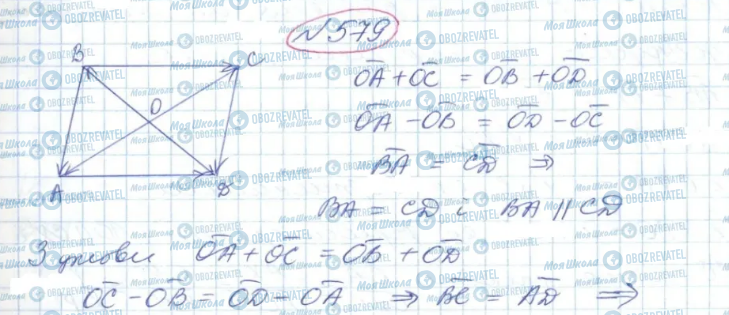 №579
B C
O
A D
OA + OC = OB + OD
OA - OB = OD - OC
BA = CD ⇒
BA = CD і BA || CD
З умови OA + OC = OB + OD
OC - OB = OD - OA ⇒ BC = AD ⇒
Моя Школа OBOZREVATEL